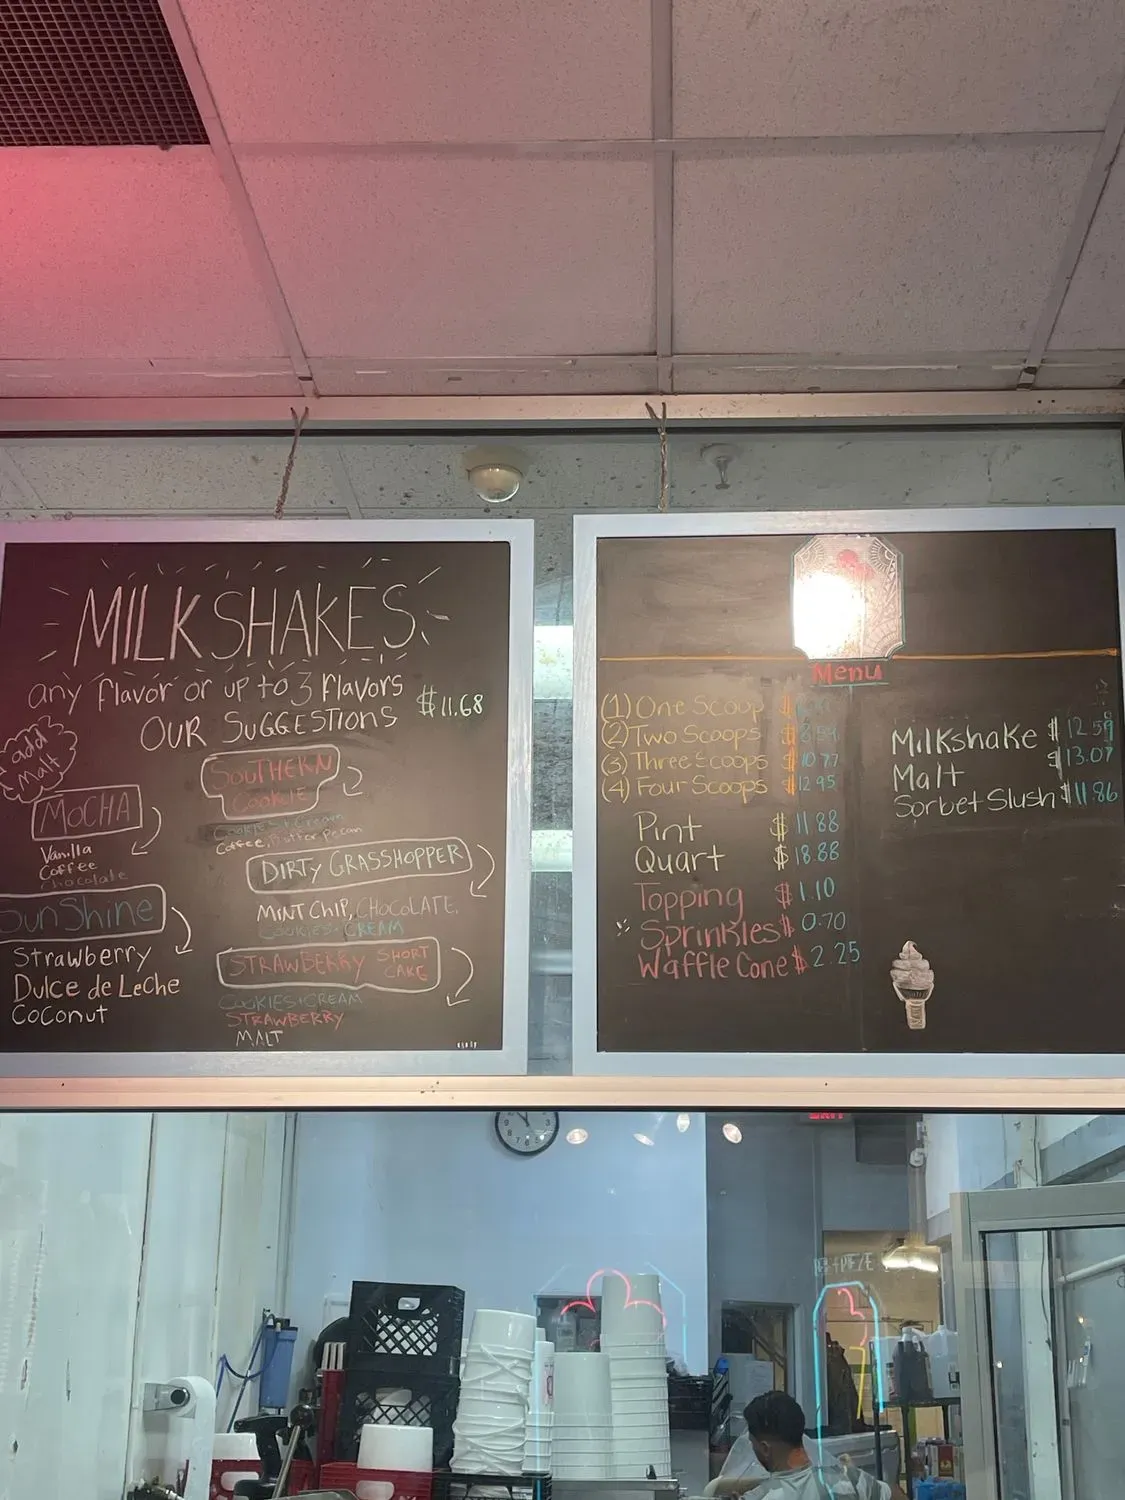 MILKSHAKES
any flavor or up to 3 flavors $11.68
OUR SUGGESTIONS
add Malt
MOCHA
Vanilla
Coffee
Chocolate
SunShine
Strawberry
Dulce de Leche
Coconut
SOUTHERN
COOKIE
Cookies + Cream
Coffee, Butter Pecan
DIRTY GRASSHOPPER
MINT CHIP, CHOCOLATE,
COOKIES + CREAM
STRAWBERRY SHORT CAKE
COOKIES + CREAM
STRAWBERRY
MALT
Menu
(1) One Scoop $
(2) Two Scoops $
(3) Three Scoops $10.77
(4) Four Scoops $12.95
Pint $11.88
Quart $18.88
Topping $1.10
Sprinkles $0.70
Waffle Cone $2.25
Milkshake $12.59
Malt $13.07
Sorbet Slush $11.86
EXIT